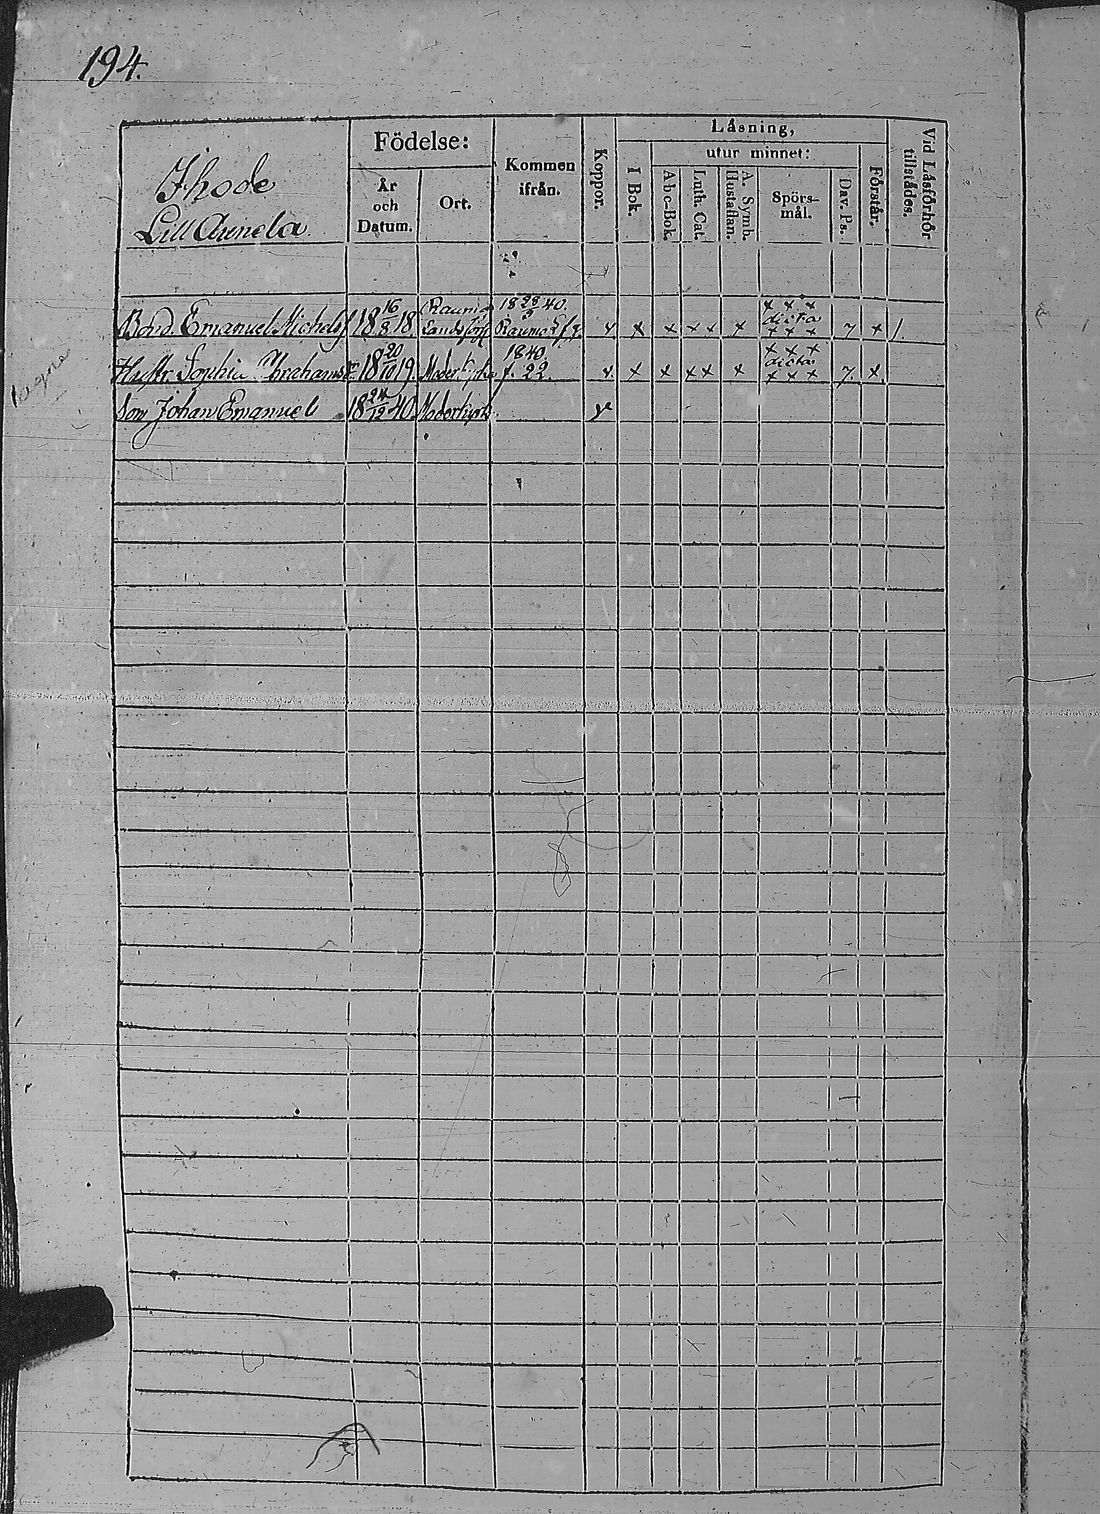 194.
Ihode
Lill Annela
Födelse:
År
och
Datum.
Ort.
Kommen
ifrån.
Koppor.
Läsning,
I Bok.
utur minnet:
Abc-Bok.
Luth. Cat.
A. Symb.
Hustaflan.
Spörs-
mål.
Dav. Ps.
Förstår.
Vid Läsförhör
tillstådes.
Bond. Emanuel Michelsf 18 16/8 18 Rauma
Landsförs 18 28/3 40.
Rauma v. x x x x x x x x
dicta
x x x 7 x 1.
Hustr Sophia Abrahams 18 20/10 19 Moderkyrka 1840
f. 22. v. x x x x x x x x
dicta
x x x 7. x
Son Johan Emanuel 18 24/12 40 Moderkyrk v